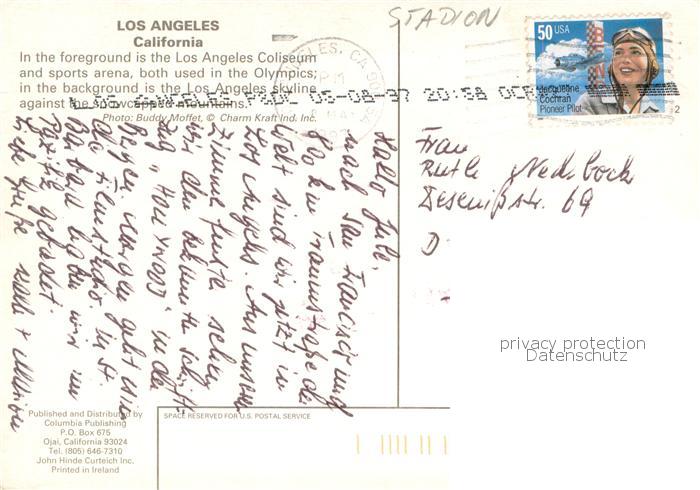 LOS ANGELES
California
In the foreground is the Los Angeles Coliseum
and sports arena, both used in the Olympics;
in the background is the Los Angeles skyline
against the snowcapped mountains.
Photo: Buddy Moffet, © Charm Kraft Ind. Inc.
STADION
50 USA
Jacqueline
Cochran
Pioneer Pilot
05-08-97 20:58
Hallo
nach San Francisco und
Traumstraße der
Welt sind wir jetzt in
Los Angeles. Aus unserem
Zimmerfenster sehen
wir den bekannte Schrift-
zug "Hollywood" in den
Bergen. Morgen geht es in
die Filmstudio. In St.
Barbara haben wir im
Pazifik gebadet.
Liebe Grüße
Frau
Ruth
69
D
privacy protection
Datenschutz
Published and Distributed by
Columbia Publishing
P.O. Box 675
Ojai, California 93024
Tel. (805) 646-7310
John Hinde Curteich Inc.
Printed in Ireland
SPACE RESERVED FOR U.S. POSTAL SERVICE